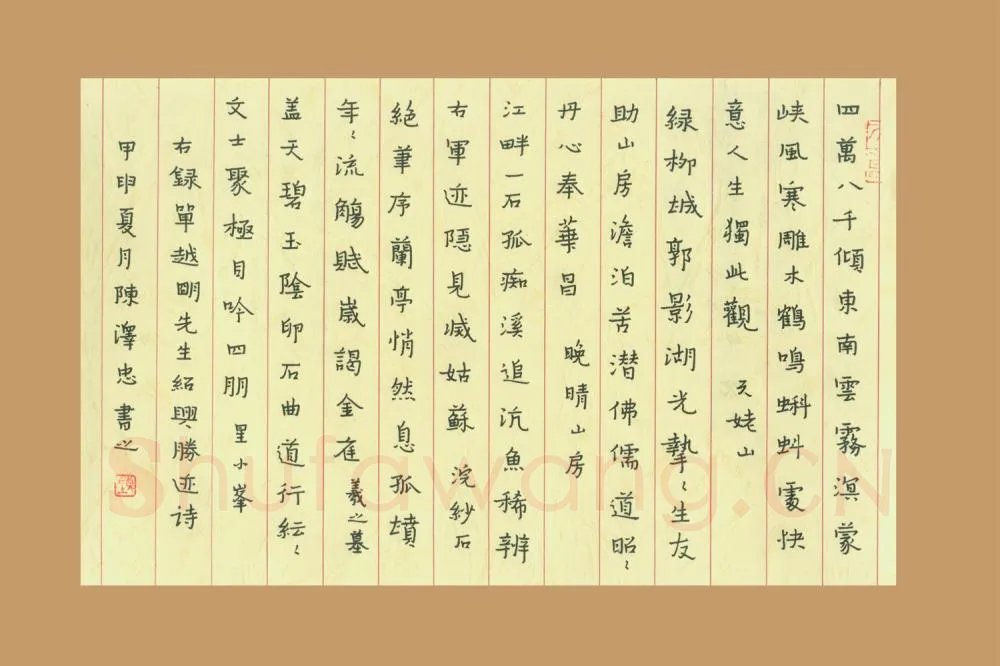 四萬八千傾東南雲霧溟蒙
峡風寒雕木鶴鳴蝌蚪處快
意人生獨此觀 天姥山
緑柳城郭影湖光摯〻生友
助山房澹泊苦潜佛儒道昭〻
丹心奉華昌 晚晴山房
江畔一石孤痴溪追沉魚稀辨
右軍迹隐見滅姑蘇 浣紗石
絕筆序蘭亭悄然息孤墳
年〻流觴賦歲謁金雀 羲之墓
盖天碧玉陰卯石曲道行紜〻
文士聚極目吟四朋 小峯
右録單越明先生紹興勝迹诗
甲申夏月陳澤忠書之
Shufawang.CN